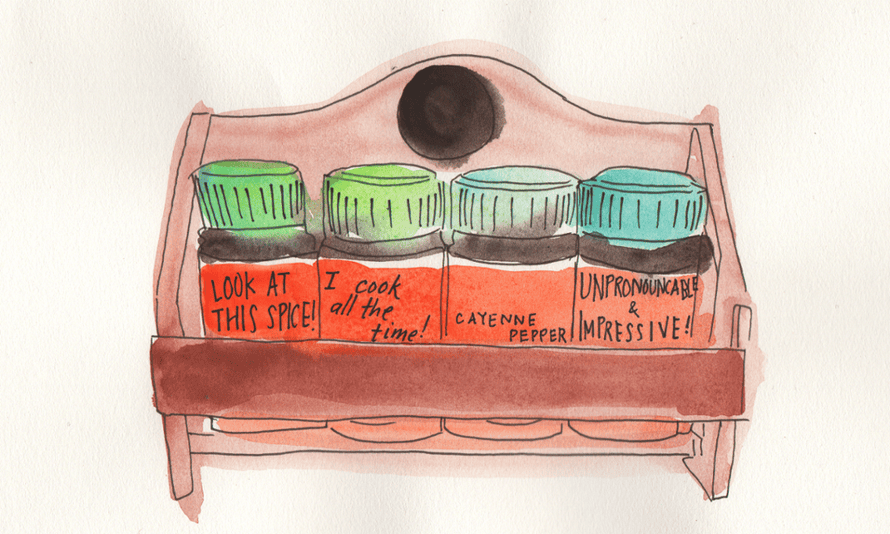 LOOK AT
THIS SPICE!
I cook
all the
time!
CAYENNE
PEPPER
UNPRONOUNCABLE
&
IMPRESSIVE!